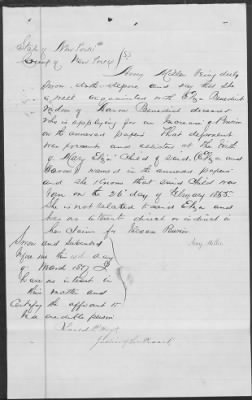 State of New York
County of New York } SS
Mary Miller being duly
sworn doth depose and say that she
is well acquainted with Eliza Benedict
widow of Harvey Benedict deceased
who is applying for an Increase of Pension
on the annexed papers That deponent
was present and assisted at the birth
of Mary Eliza Child of said Eliza and
Harvey named in the annexed papers
and she knows that said Child was
born on the 26 day of February 1855.
She is not related to said Eliza and
has no interest direct or indirect in
her Claim for Pension
Mary Miller
Sworn and subscribed
before me this day
of March 1867 I
have no interest in
this matter and
Certify the affiant is
a credible person
Justice of the Peace